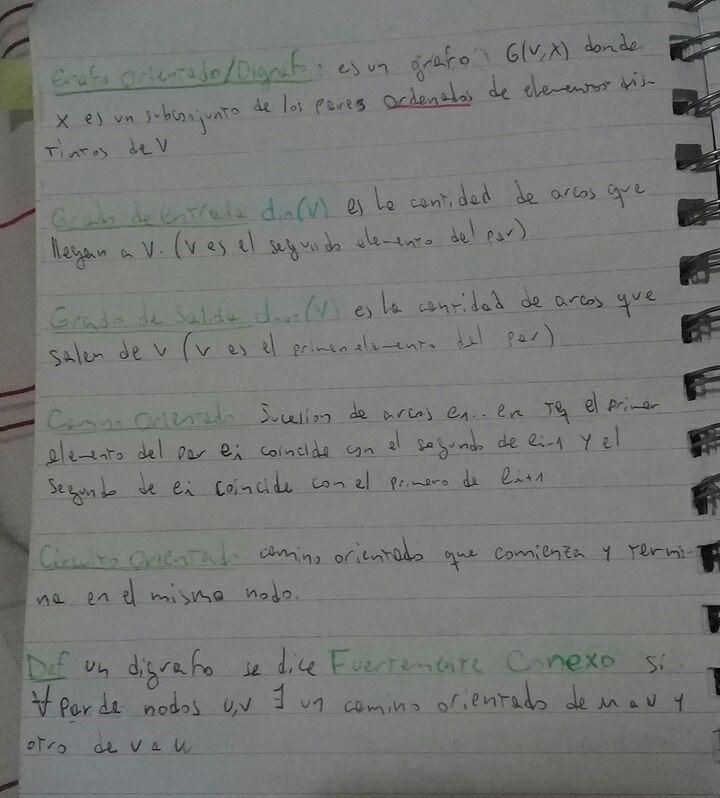 Grafo Orientado/Digrafo: es un grafo G(V,X) donde
X es un subconjunto de los pares Ordenados de elementos dis-
tintos de V
Grado de entrada din(V) es la cantidad de arcos que
llegan a V. (V es el segundo elemento del par)
Grado de Salida dout(V) es la cantidad de arcos que
salen de V (V es el primer elemento del par)
Camino Orientado Sucesion de arcos e1..ek tq el primer
elemento del par ei coincide con el segundo de ei-1 y el
segundo de ei coincide con el primero de ei+1
Circuito Orientado camino orientado que comienza y termi-
na en el mismo nodo.
Def un digrafo se dice Fuertemente Conexo si
∀ Par de nodos u,v ∃ un camino orientado de u a v y
otro de v a u